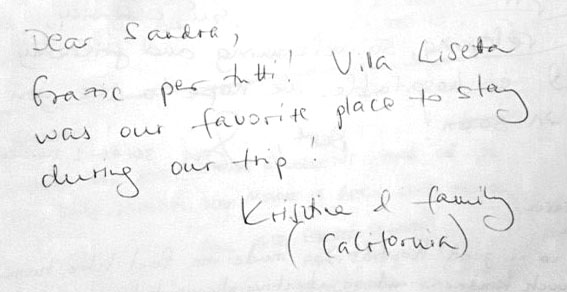 Dear Sandra,
Grazie per tutti! Villa Liseta
was our favorite place to stay
during our trip.
Kristine & family
(California)